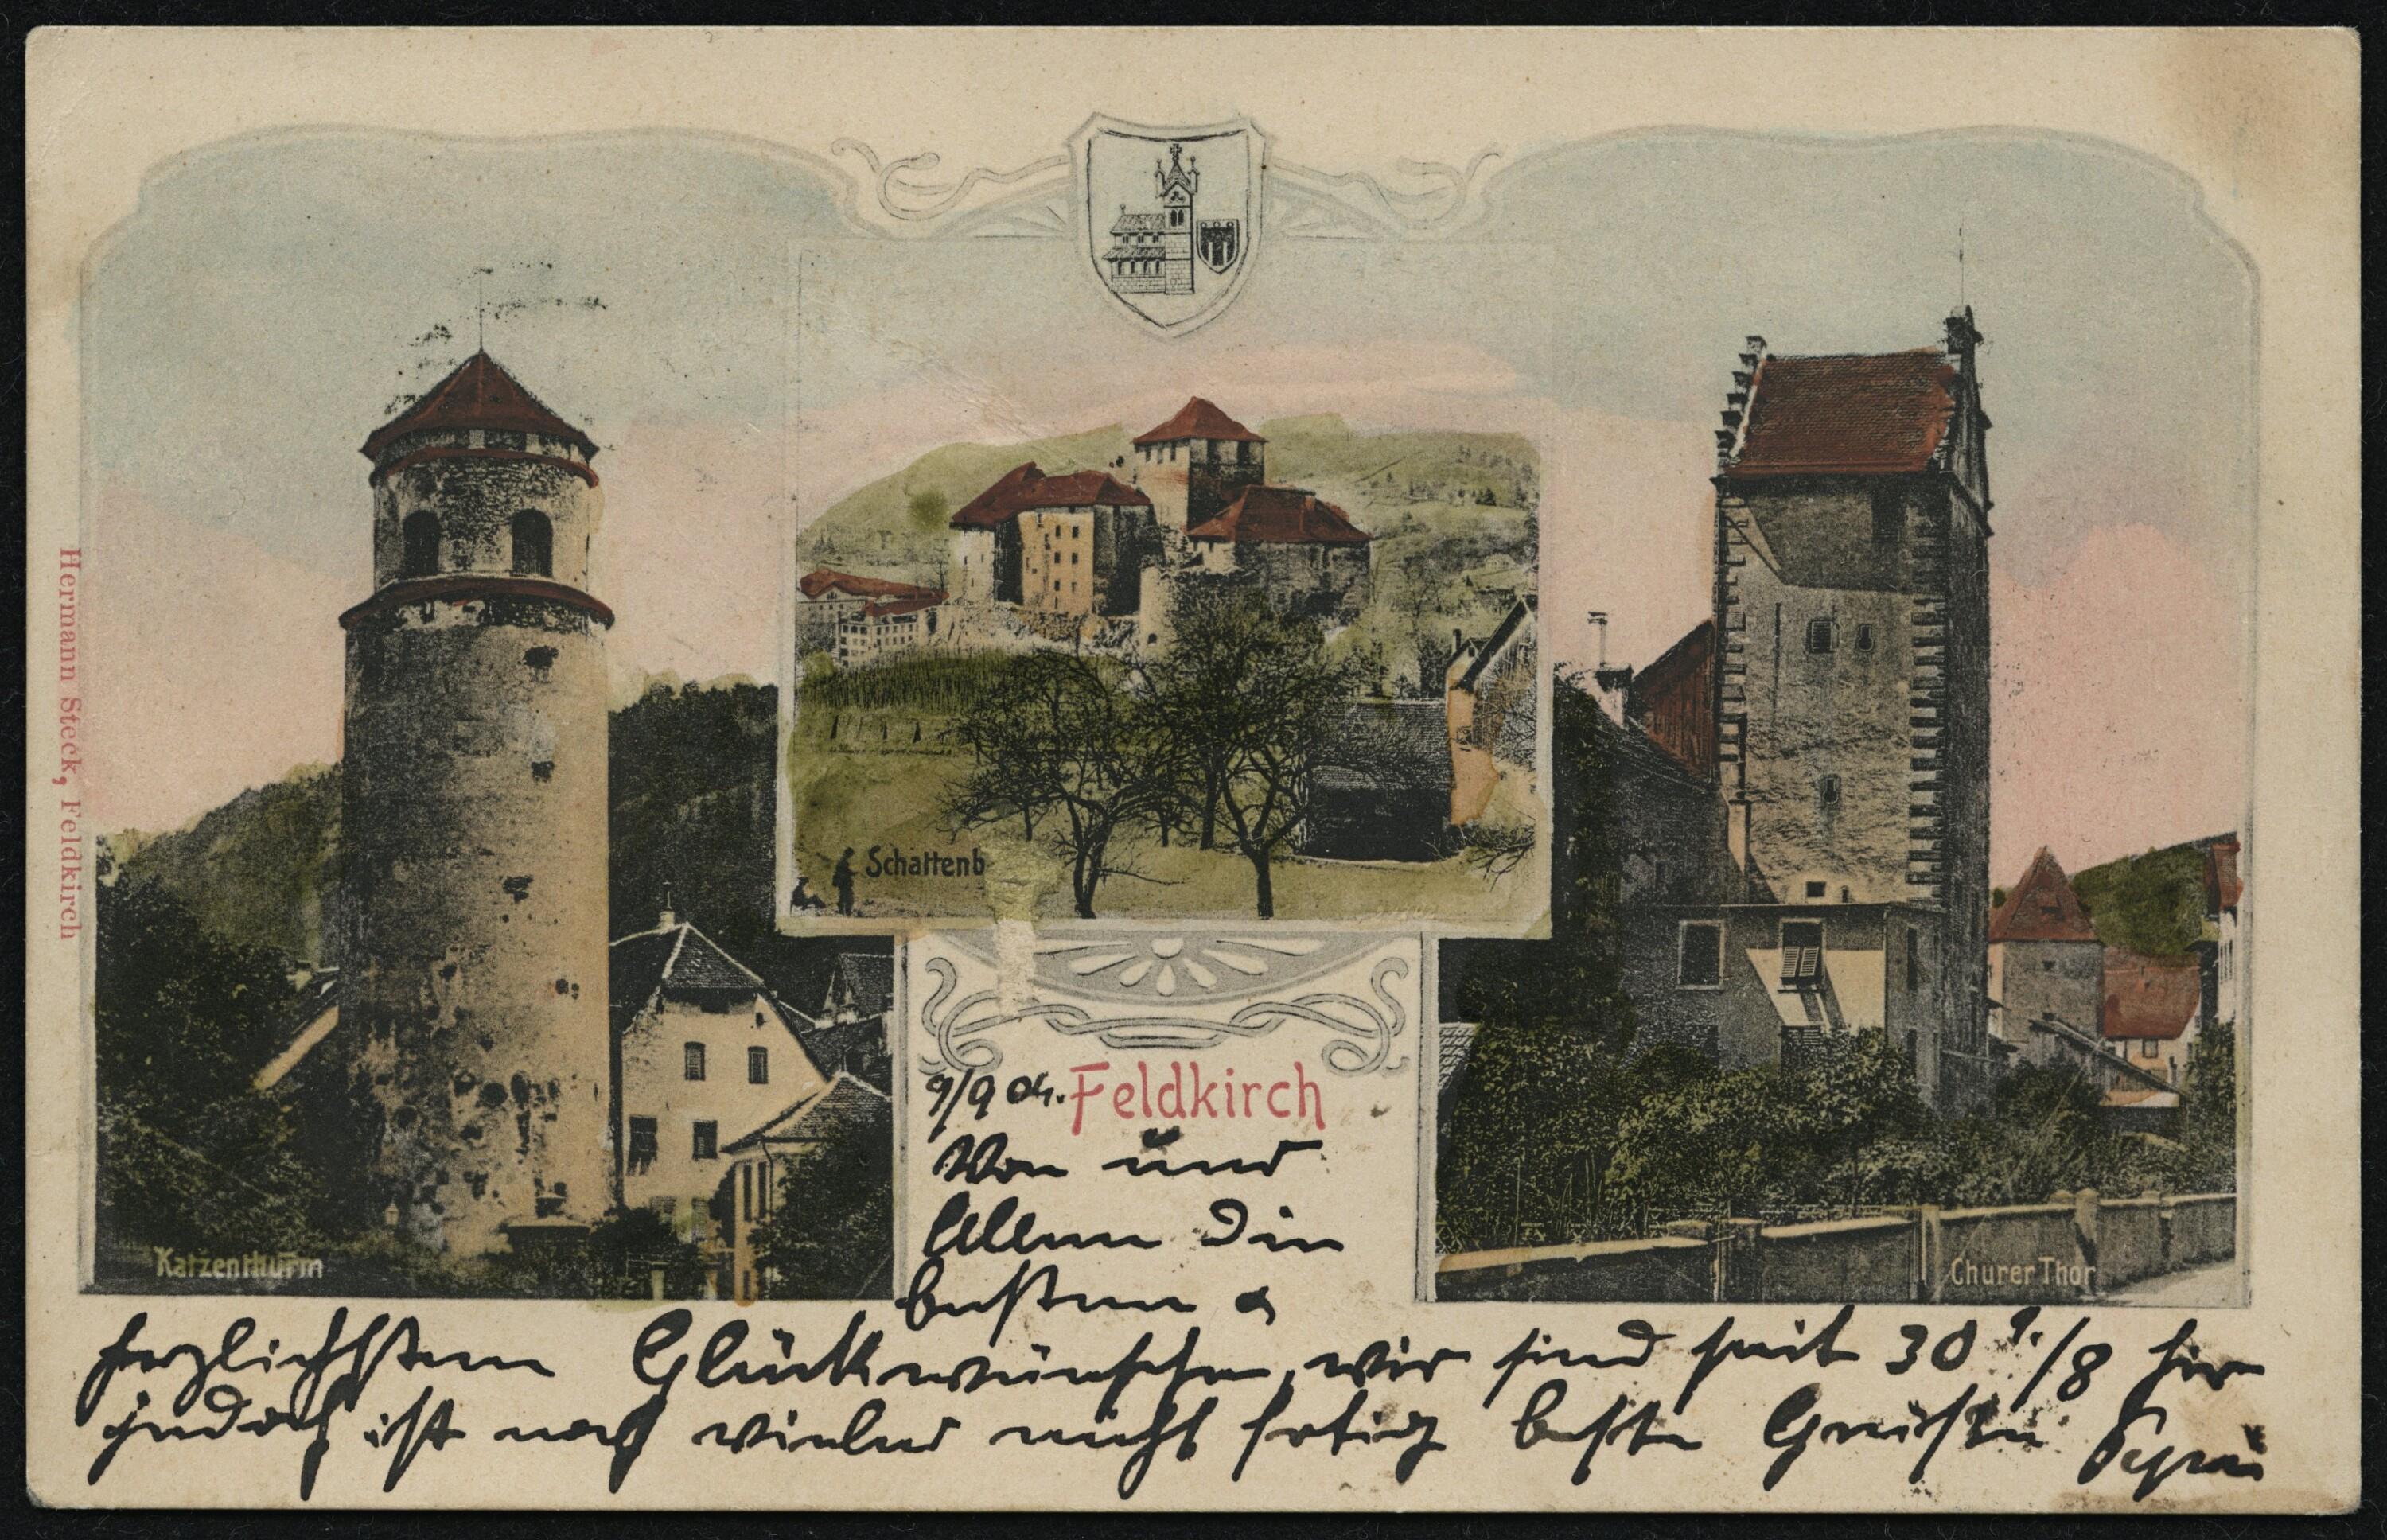 Hermann Steck, Feldkirch
Schattenb
Katzenthurm
Churer Thor
9/9 04. Feldkirch
Von uns
Allen die
besten &
herzlichsten Glückwünsche, wir sind seit 30 /8 hier
jedoch ist noch vieles nicht fertig beste Grüße